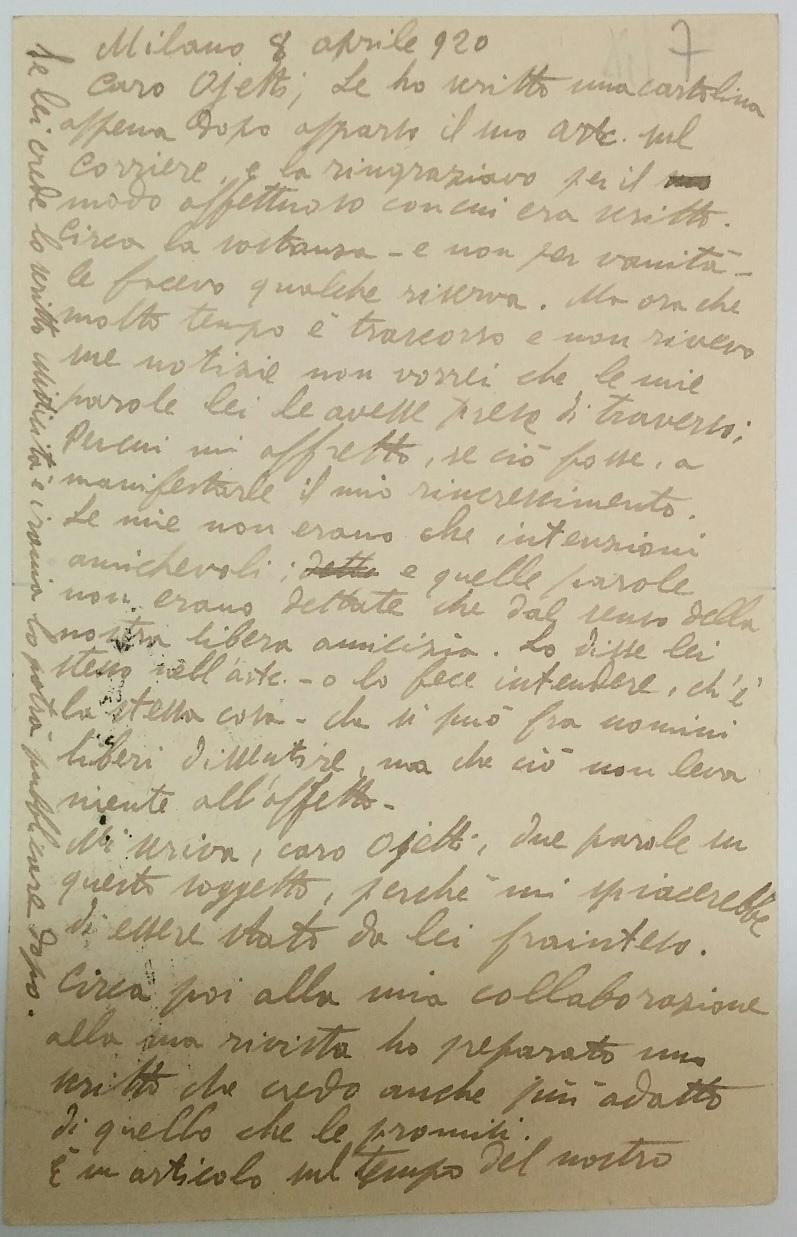 7
Milano 8 aprile 920
Caro Ojetti, Le ho scritto una cartolina
appena dopo apparso il suo artc. sul
Corriere, e la ringraziavo per il suo
modo affettuoso con cui era scritto.
Circa la sostanza - e non per vanità -
le facevo qualche riserva. Ma ora che
molto tempo è trascorso e non ricevo
sue notizie non vorrei che le mie
parole lei le avesse prese di traverso;
Percui mi affretto, se ciò fosse, a
manifestarle il mio rincrescimento.
Le mie non erano che intenzioni
amichevoli; dette e quelle parole
non erano dettate che dal senso della
nostra libera amicizia. Lo disse lei
stesso nell'artc. - o lo fece intendere, ch'è
la stessa cosa - che si può fra uomini
liberi discutere, ma che ciò non leva
niente all'affetto -
Mi scriva, caro Ojetti, due parole in
questo soggetto, perchè mi spiacerebbe
di essere stato da lei frainteso.
Circa poi alla mia collaborazione
alla sua rivista ho preparato uno
scritto che credo anche più adatto
di quello che le promisi.
È un articolo sul tempo del nostro
Se lei crede lo scritto e ironia lo potrà pubblicare dopo.